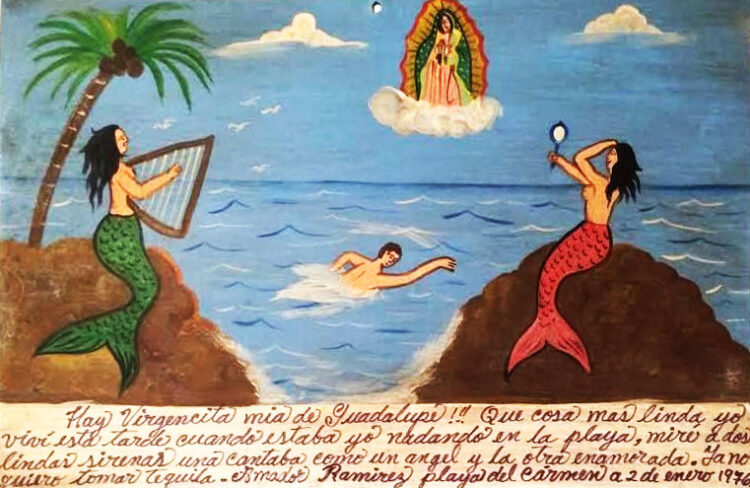 Hay Virgencita mia de Guadalupe!!! Que cosa mas linda yo
vivi esta tarde cuando estaba yo nadando en la playa, mire a dos
lindas sirenas una cantaba como un angel y la otra enamorada. Ya no
quiero tomar tequila. Amador Ramirez playa del Carmen a 2 de enero 1976